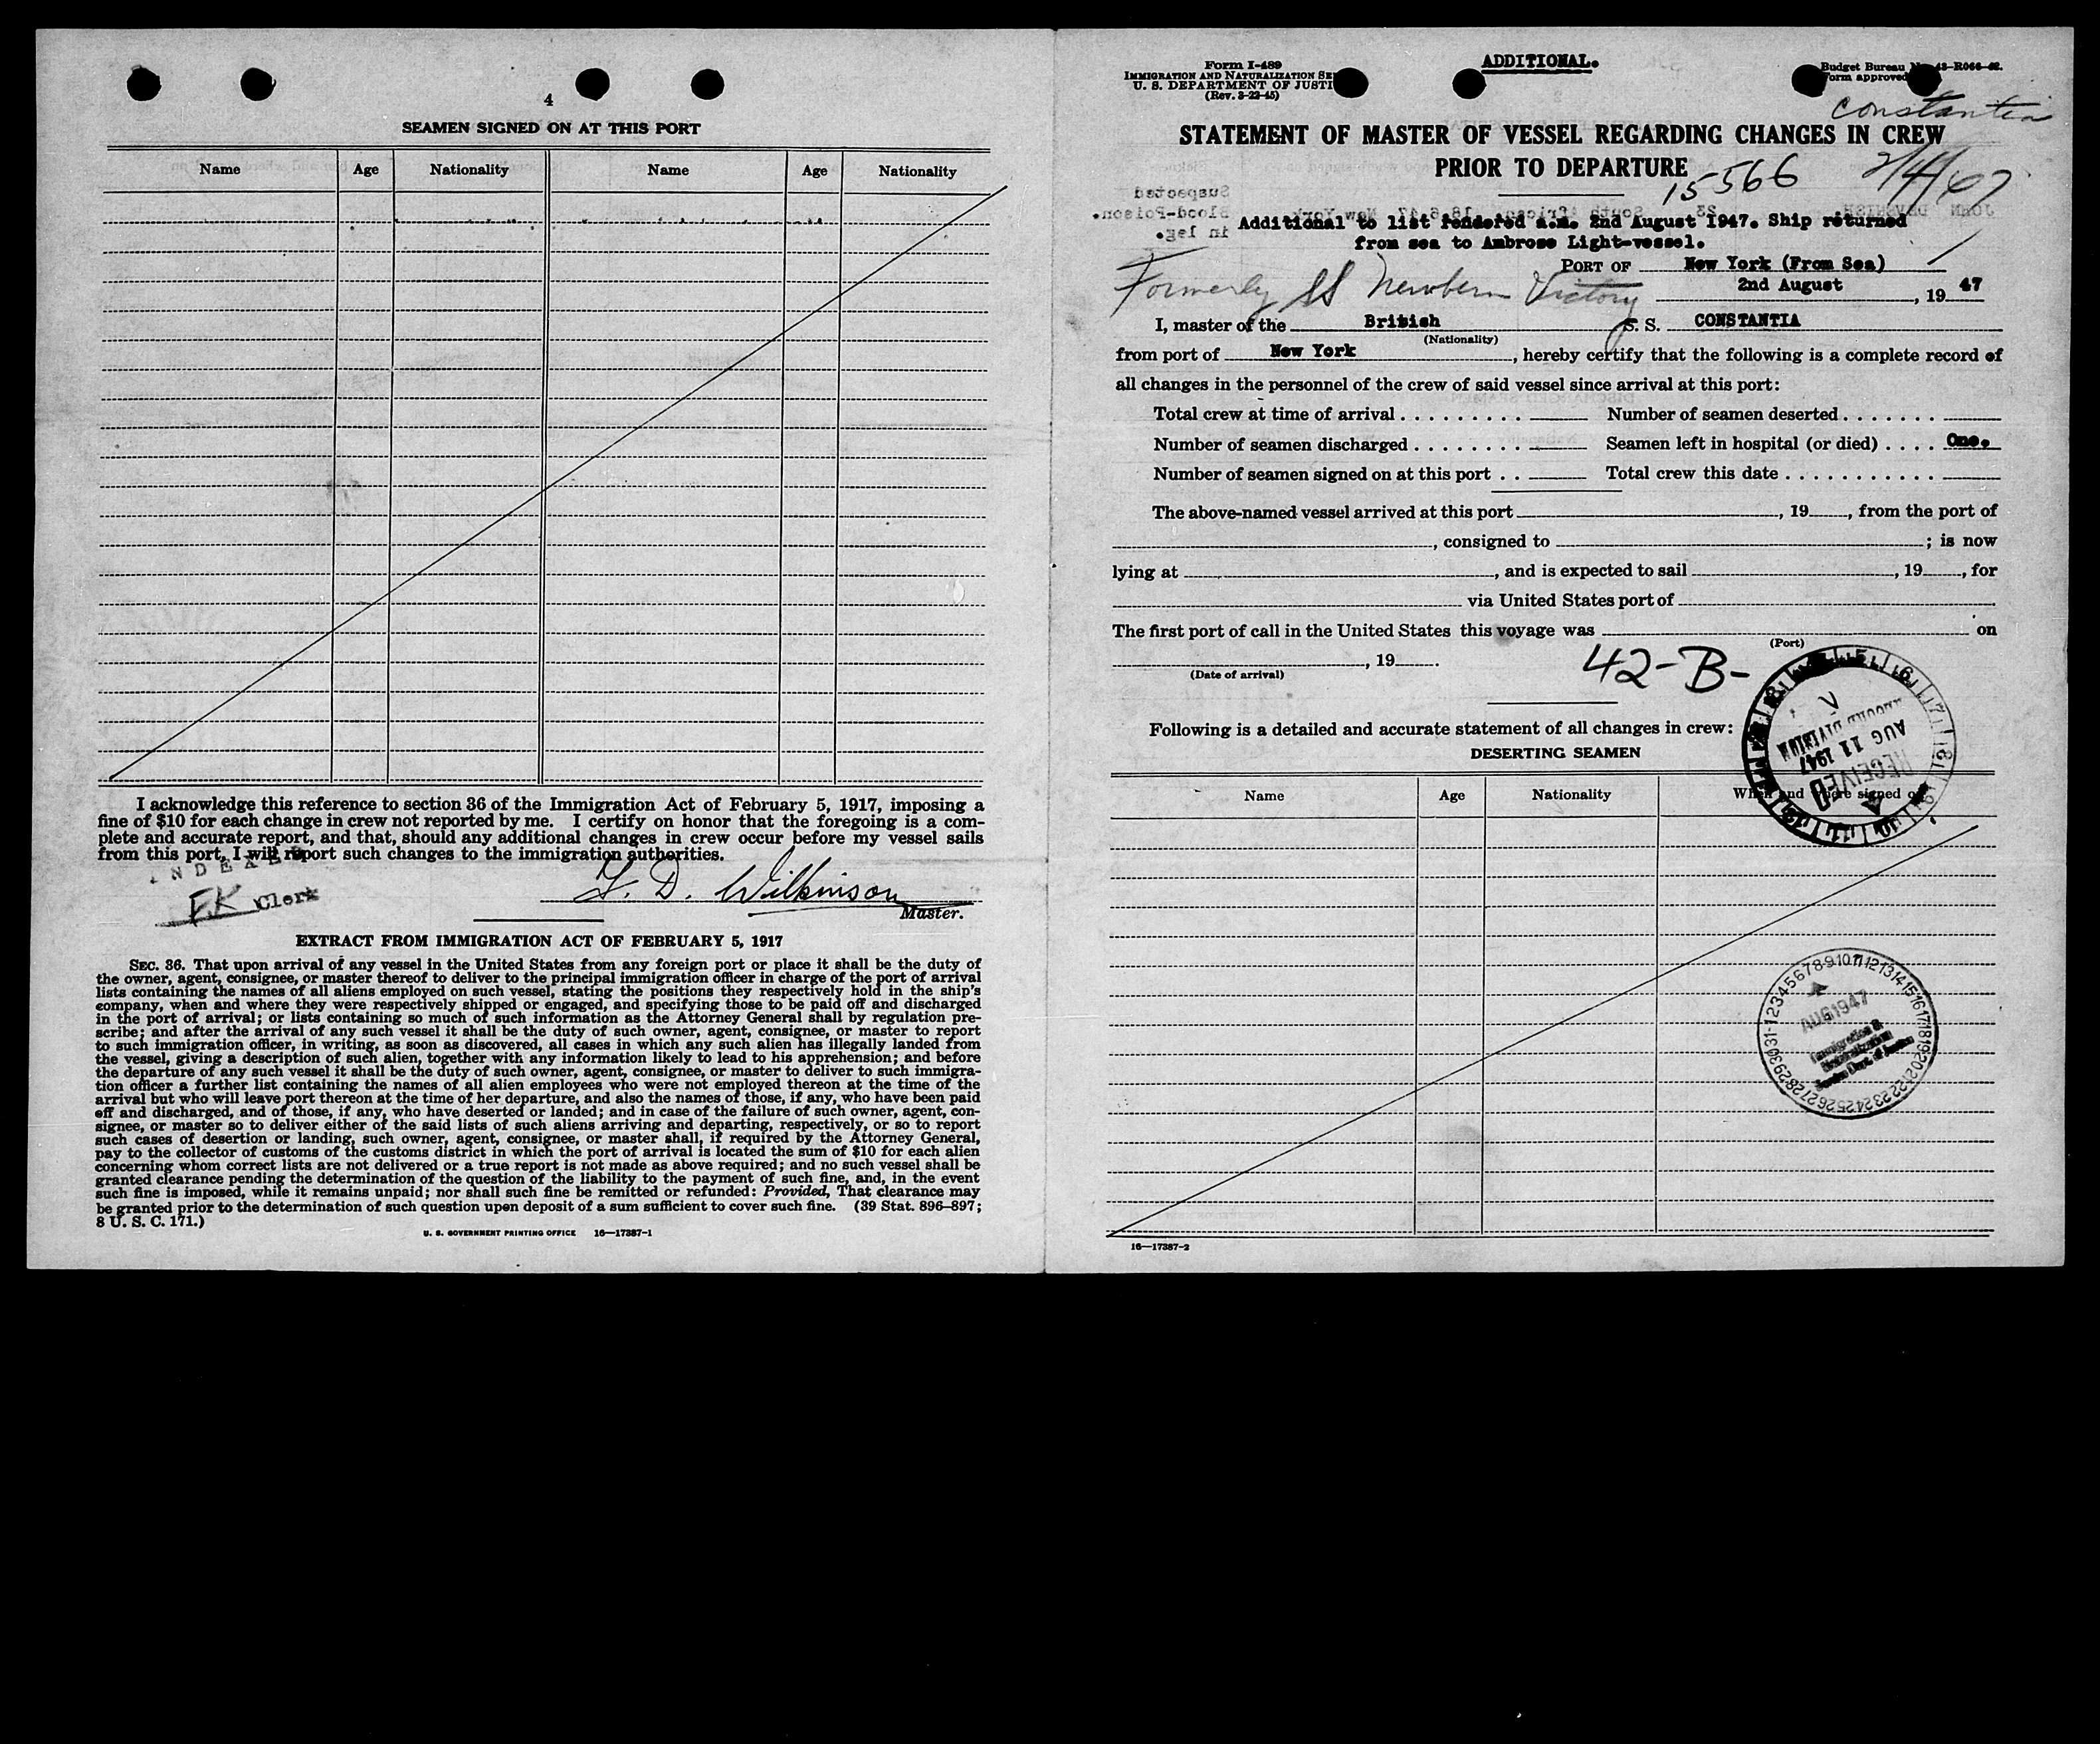 4
SEAMEN SIGNED ON AT THIS PORT
Name Age Nationality Name Age Nationality
I acknowledge this reference to section 36 of the Immigration Act of February 5, 1917, imposing a
fine of $10 for each change in crew not reported by me. I certify on honor that the foregoing is a com-
plete and accurate report, and that, should any additional changes in crew occur before my vessel sails
from this port, I will report such changes to the immigration authorities.
INDEXED
F.K Clerk
Wilkinson
Master.
EXTRACT FROM IMMIGRATION ACT OF FEBRUARY 5, 1917
SEC. 36. That upon arrival of any vessel in the United States from any foreign port or place it shall be the duty of
the owner, agent, consignee, or master thereof to deliver to the principal immigration officer in charge of the port of arrival
lists containing the names of all aliens employed on such vessel, stating the positions they respectively hold in the ship's
company, when and where they were respectively shipped or engaged, and specifying those to be paid off and discharged
in the port of arrival; or lists containing so much of such information as the Attorney General shall by regulation pre-
scribe; and after the arrival of any such vessel it shall be the duty of such owner, agent, consignee, or master to report
to such immigration officer, in writing, as soon as discovered, all cases in which any such alien has illegally landed from
the vessel, giving a description of such alien, together with any information likely to lead to his apprehension; and before
the departure of any such vessel it shall be the duty of such owner, agent, consignee, or master to deliver to such immigra-
tion officer a further list containing the names of all alien employees who were not employed thereon at the time of the
arrival but who will leave port thereon at the time of her departure, and also the names of those, if any, who have been paid
off and discharged, and of those, if any, who have deserted or landed; and in case of the failure of such owner, agent, con-
signee, or master so to deliver either of the said lists of such aliens arriving and departing, respectively, or so to report
such cases of desertion or landing, such owner, agent, consignee, or master shall, if required by the Attorney General,
pay to the collector of customs of the customs district in which the port of arrival is located the sum of $10 for each alien
concerning whom correct lists are not delivered or a true report is not made as above required; and no such vessel shall be
granted clearance pending the determination of the question of the liability to the payment of such fine, and, in the event
such fine is imposed, while it remains unpaid; nor shall such fine be remitted or refunded: Provided, That clearance may
be granted prior to the determination of such question upon deposit of a sum sufficient to cover such fine. (39 Stat. 896–897;
8 U. S. C. 171.)
U. S. GOVERNMENT PRINTING OFFICE 16—17387-1
Form I-489
IMMIGRATION AND NATURALIZATION SE
U. S. DEPARTMENT OF JUSTI
(Rev. 3-22-45)
ADDITIONAL.
Budget Bureau 43-R066-
orm approved
Constantia
STATEMENT OF MASTER OF VESSEL REGARDING CHANGES IN CREW
PRIOR TO DEPARTURE
15566
Additional to list rendered a.m. 2nd August 1947. Ship returned
from sea to Ambrose Light-vessel.
PORT OF New York (From Sea)
Formerly SS Newbern Victory
2nd August, 19 47
I, master of the British S. S. CONSTANTIA
(Nationality)
from port of New York, hereby certify that the following is a complete record of
all changes in the personnel of the crew of said vessel since arrival at this port:
Total crew at time of arrival Number of seamen deserted
Number of seamen discharged Seamen left in hospital (or died) One.
Number of seamen signed on at this port Total crew this date
The above-named vessel arrived at this port , 19 , from the port of
, consigned to ; is now
lying at , and is expected to sail , 19 , for
via United States port of
The first port of call in the United States this voyage was on
(Port)
, 19 .
(Date of arrival)
42-B-
RECEIVED
AUG 11 1947
DIVISION
Following is a detailed and accurate statement of all changes in crew:
DESERTING SEAMEN
Name Age Nationality When and where signed on
AUG 1947
Immigration &
Naturalization
Service Dept. of Justice
16—17387-2